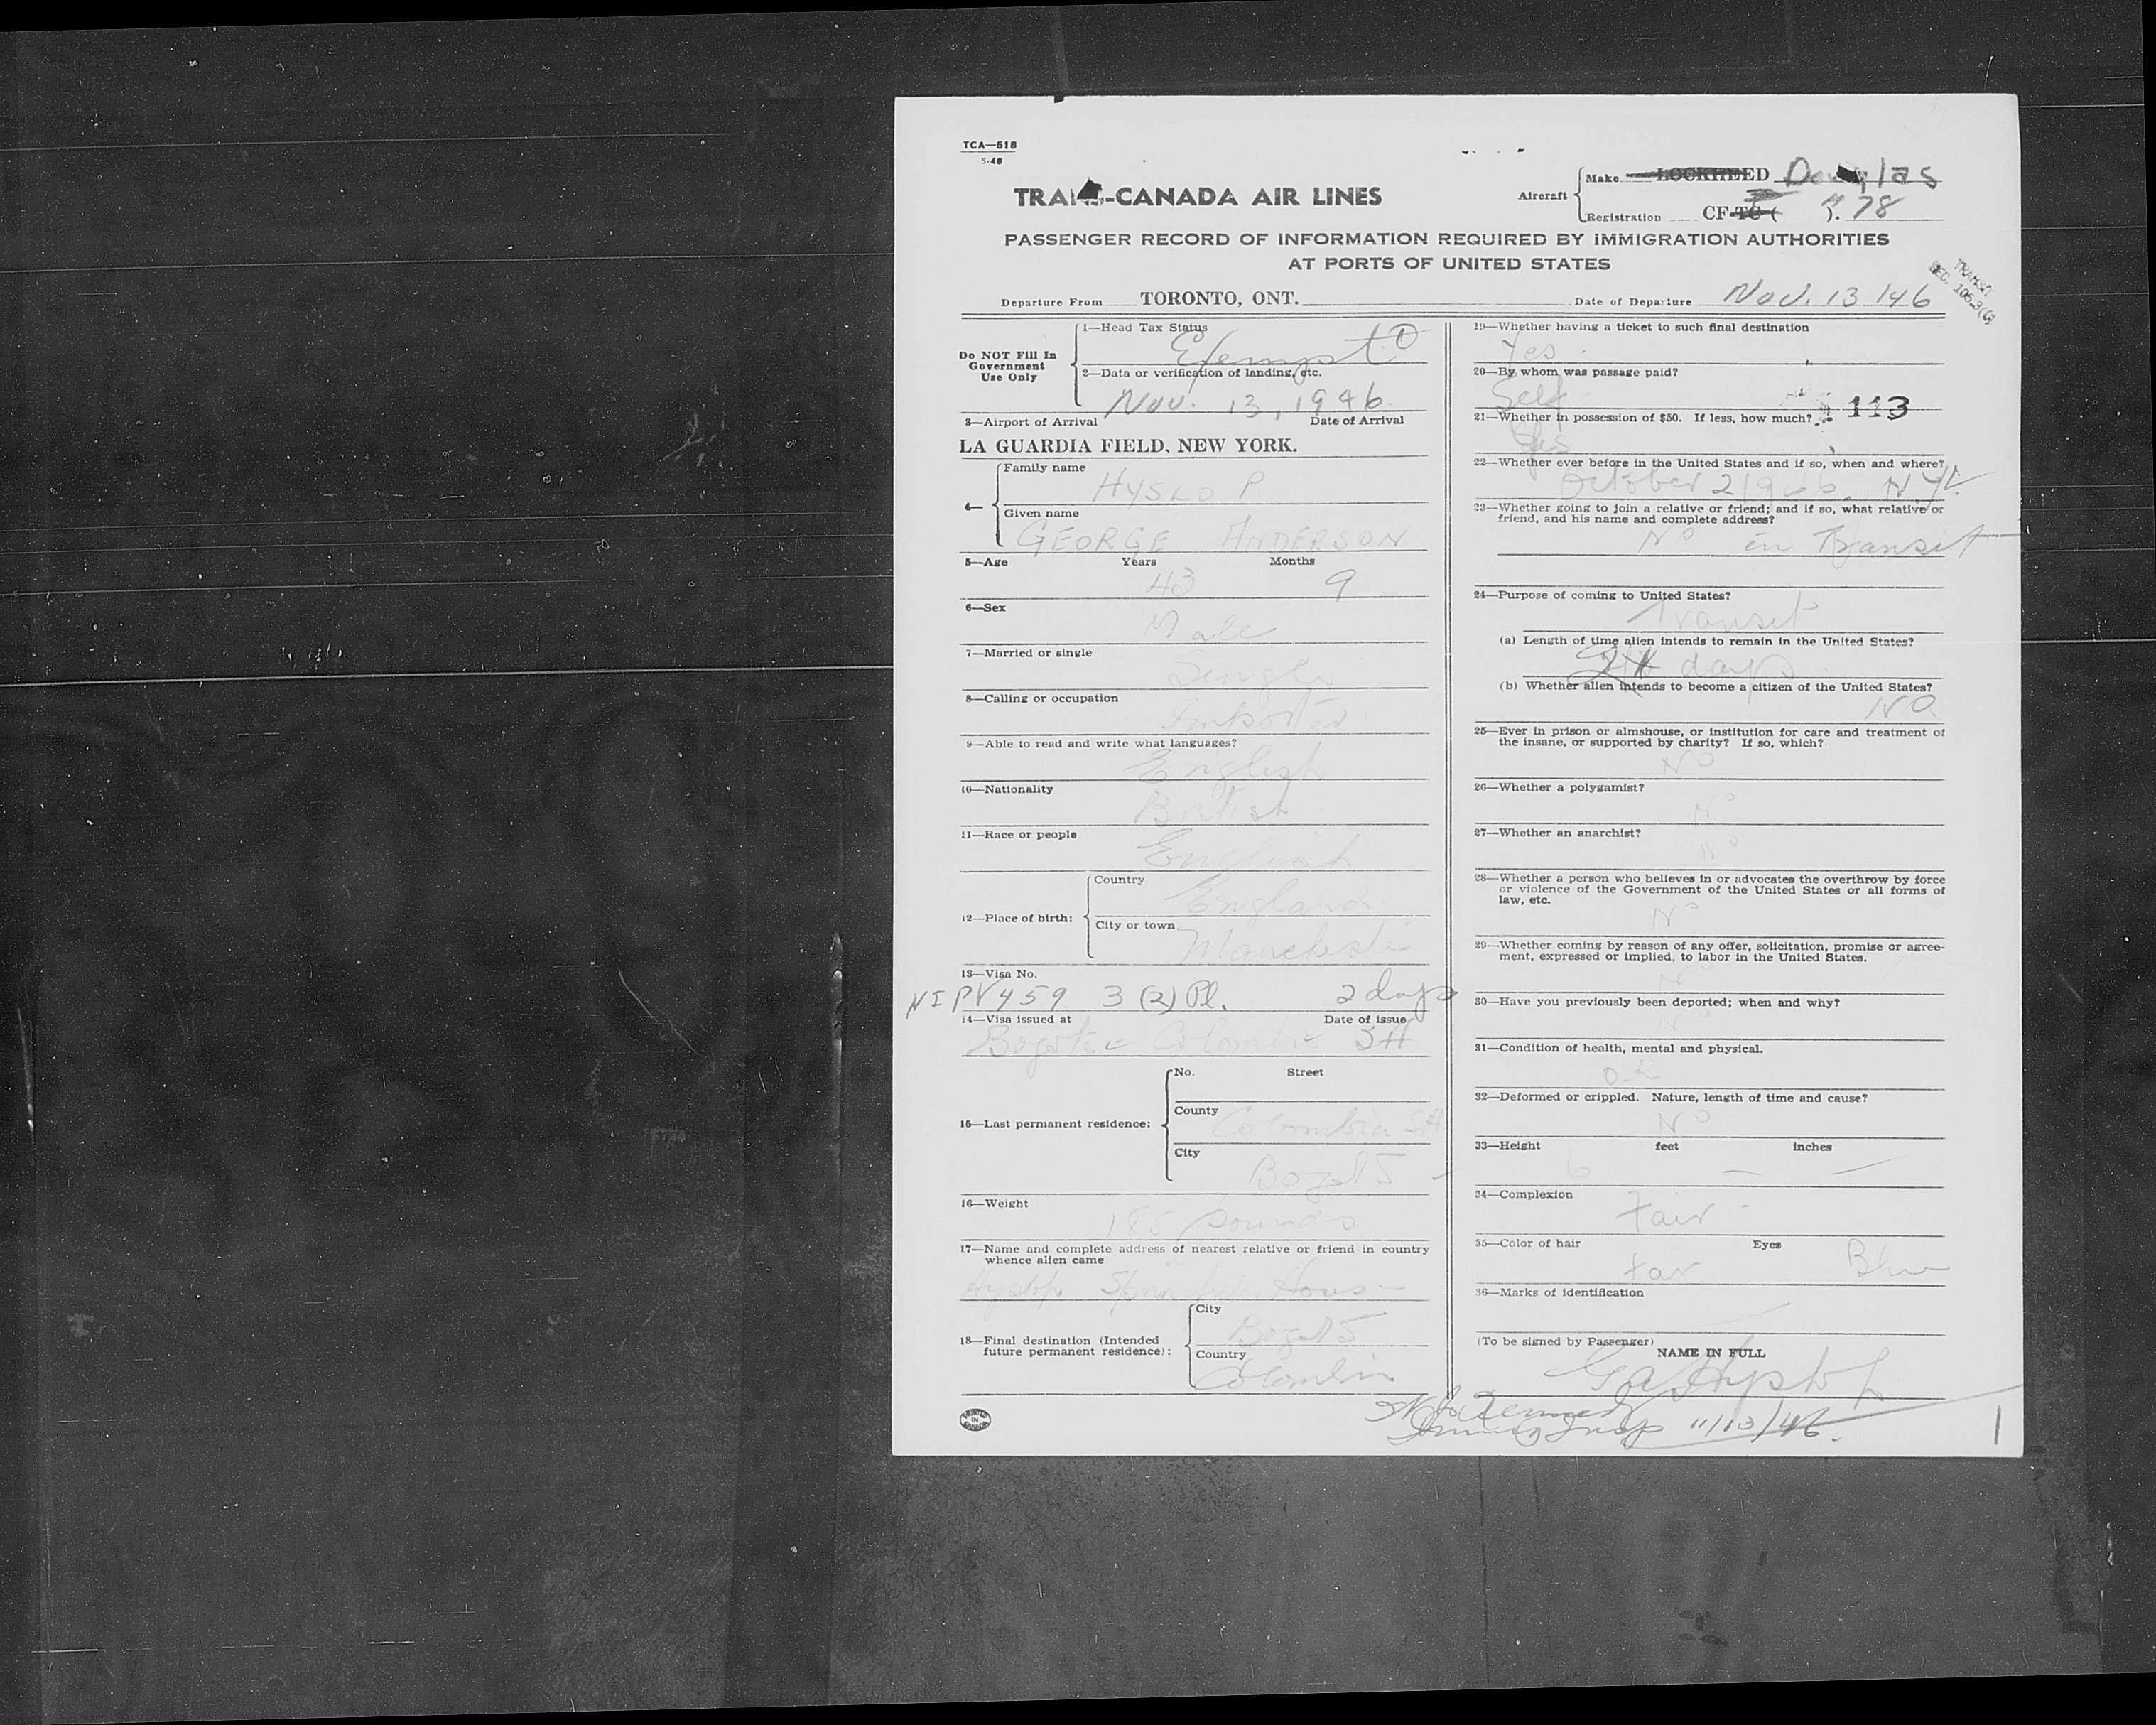 TCA—518
5-46
TRANS-CANADA AIR LINES
Aircraft
Make LOCKHEED Douglas
Registration CF-TC ( ). 78
PASSENGER RECORD OF INFORMATION REQUIRED BY IMMIGRATION AUTHORITIES
AT PORTS OF UNITED STATES
TRANSIT
SEC. 106.3(G)
Departure From TORONTO, ONT. Date of Departure Nov. 13/46
Do NOT Fill In Government Use Only
1—Head Tax Status
Exempt
2—Data or verification of landing, etc.
Nov. 13, 1946
3—Airport of Arrival Date of Arrival
LA GUARDIA FIELD, NEW YORK.
4—
Family name
HYSLOP
Given name
GEORGE ANDERSON
5—Age Years Months
43 9
6—Sex
Male
7—Married or single
Single
8—Calling or occupation
Importer
9—Able to read and write what languages?
English
10—Nationality
British
11—Race or people
English
12—Place of birth:
Country
England
City or town
Manchester
13—Visa No.
NI PV 459 3 (2) Pl. 2 days
14—Visa issued at Date of issue
Bogota Colombia SA
15—Last permanent residence:
No. Street
County
Colombia SA
City
Bogota
16—Weight
185 pounds
17—Name and complete address of nearest relative or friend in country
whence alien came
Hyslop House
18—Final destination (Intended
future permanent residence):
City
Bogota
Country
Colombia
PRINTED IN CANADA
19—Whether having a ticket to such final destination
Yes
20—By whom was passage paid?
Self
21—Whether in possession of $50. If less, how much? 113
Yes
22—Whether ever before in the United States and if so, when and where?
October 2 1946. N.Y.
23—Whether going to join a relative or friend; and if so, what relative or
friend, and his name and complete address?
No in Transit
24—Purpose of coming to United States?
Transit
(a) Length of time alien intends to remain in the United States?
days
(b) Whether alien intends to become a citizen of the United States?
NO
25—Ever in prison or almshouse, or institution for care and treatment of
the insane, or supported by charity? If so, which?
No
26—Whether a polygamist?
No
27—Whether an anarchist?
No
28—Whether a person who believes in or advocates the overthrow by force
or violence of the Government of the United States or all forms of
law, etc.
No
29—Whether coming by reason of any offer, solicitation, promise or agree-
ment, expressed or implied, to labor in the United States.
No
30—Have you previously been deported; when and why?
No
31—Condition of health, mental and physical.
O.K
32—Deformed or crippled. Nature, length of time and cause?
No
33—Height feet inches
6 —
34—Complexion
Fair
35—Color of hair Eyes
Fair Blue
36—Marks of identification
(To be signed by Passenger)
NAME IN FULL
G A Hyslop
Kennedy
Immig Insp 11/13/46.
1